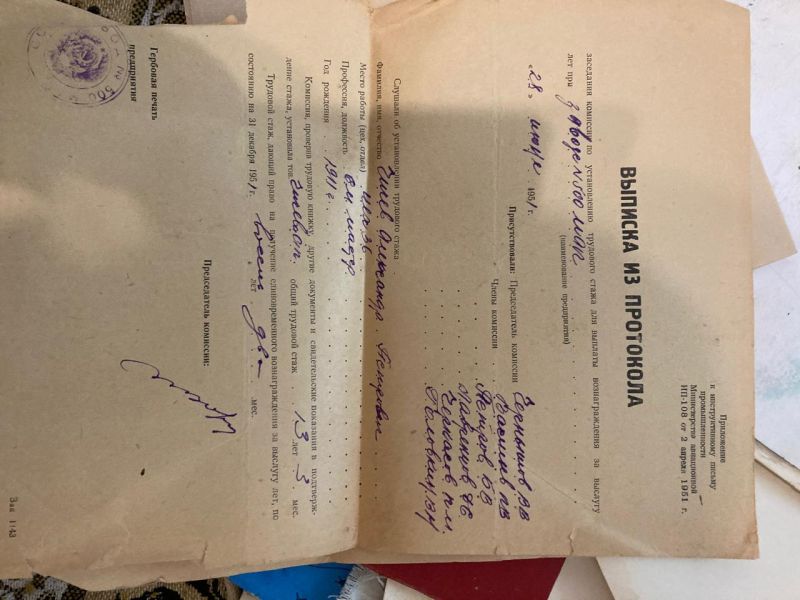 Приложение
к инструктивному письму
Министерства авиационной
промышленности
ИП-108 от 2 апреля 1951 г.
ВЫПИСКА ИЗ ПРОТОКОЛА
заседания комиссии по установлению трудового стажа для выплаты вознаграждения за выслугу
лет при заводе N 500 МАП
(наименование предприятия)
«28» июня 1951 г.
Присутствовали: Председатель комиссии
Члены комиссии
Петров
Черкасов Н.М.
Слушали об установлении трудового стажа
Фамилия, имя, отчество Александр Петрович
Место работы (цех, отдел) цех 36
Профессия, должность см. мастер
Год рождения 1911 г.
Комиссия, проверив трудовую книжку, другие документы и свидетельские показания в подтверж-
дение стажа, установила тов. общий трудовой стаж 13 лет 3 мес.
Трудовой стаж, дающий право на получение единовременного вознаграждения за выслугу лет, по
состоянию на 31 декабря 1951 г. восемь лет два мес.
Председатель комиссии:
Гербовая печать
предприятия
Зак 1143